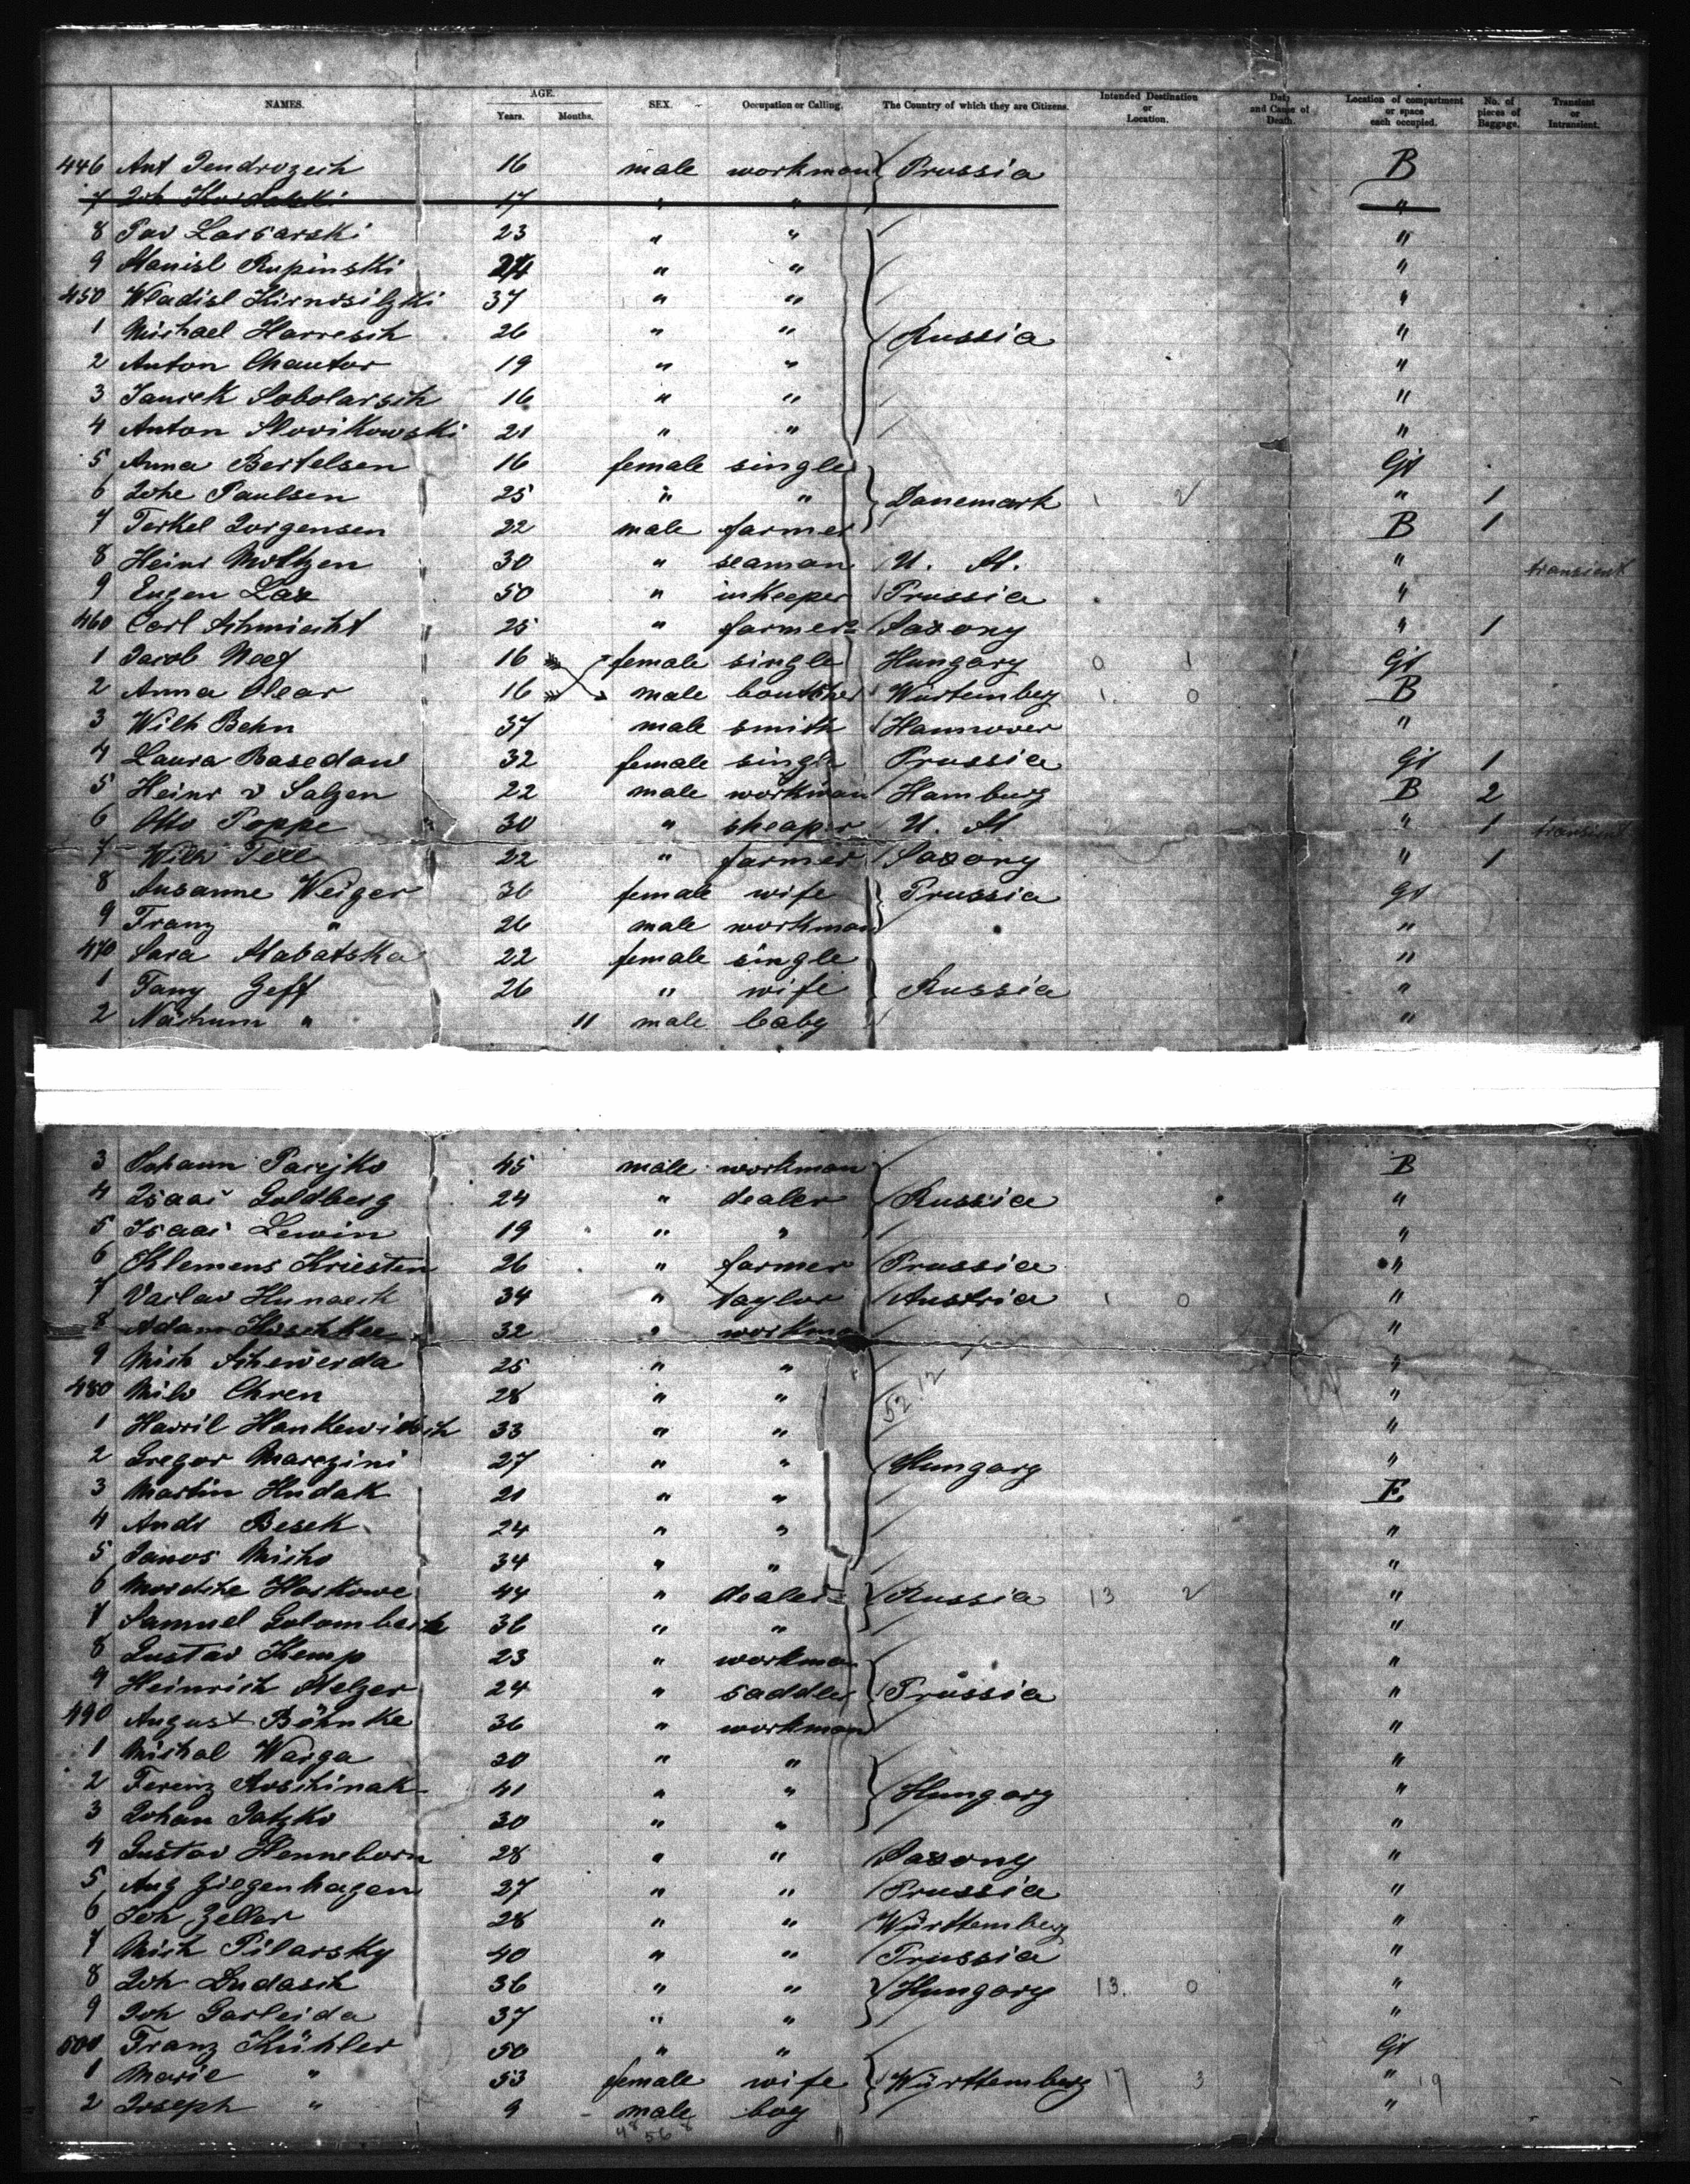 NAMES. AGE. Years. Months. SEX. Occupation or Calling. The Country of which they are Citizens. Intended Destination or Location. Date and Cause of Death. Location of compartment or space each occupied. No. of pieces of Baggage. Transient or Intransient.
446 Ant 16 male workman Prussia B
7 Joh 17 " " "
8 23 " " "
9 Stanisl Rupinski 24 " " "
450 Wladisl 37 " " "
1 Michael Harresch 26 " " Russia "
2 Anton Chautor 19 " " "
3 16 " " "
4 Anton Slovikowski 21 " " "
5 Anna Bertelsen 16 female single
6 Johe Paulsen 25 " " Danemark 1 2 " 1
7 Terkel Jorgensen 22 male farmer B 1
8 Heinr Moltzen 30 " seaman U. St. " transient
9 Eugen 50 " inkeeper Prussia "
460 Carl Schmicht 25 " farmer Saxony " 1
1 Jacob Neef 16 female single Hungary 0 1
2 Anna Clear 16 male boutcher Würtemberg 1 0 B
3 Wilh Behn 37 male smith Hannover "
4 Laura Basedow 32 female single Prussia 1
5 Heinr v Salzen 22 male workman Hamburg B 2
6 Otto Poppe 30 " U. St " 1 transient
7 Wilh Tell 22 " farmer Saxony " 1
8 Susanne Weiger 36 female wife Prussia
9 Franz " 26 male workman "
470 Sara Stabatska 22 female single "
1 Fany Geff 26 " wife Russia "
2 Nachum " 11 male baby "
3 Johann 45 male workman B
4 Isaac Goldberg 24 " dealer Russia "
5 Isaac Lewin 19 " " "
6 Klemens Kriesten 26 " farmer Prussia "
7 Vaclav 34 " taylor Austria 1 0 "
8 Adam 32 " workman "
9 Mich Schewerda 25 " " "
480 Chren 28 " " 52 12 "
1 33 " " "
2 Gregor 27 " " Hungary "
3 Martin Hudak 21 " " E
4 Andr Besek 24 " " "
5 Janos Micho 34 " " "
6 44 " dealer Russia 13 2 "
7 Samuel 36 " " "
8 Gustav Kemp 23 " workman "
9 Heinrich Stelzer 24 " saddler Prussia "
490 August Böhnke 36 " workman "
1 Michal Warga 30 " " "
2 Ferenz 41 " " Hungary "
3 Johan 30 " " "
4 Gustav Henneborn 28 " " Saxony "
5 Aug Ziegenhagen 27 " " Prussia "
6 Joh Zeller 28 " " Württemberg "
7 Mich Pilarsky 40 " " Prussia "
8 Joh Dudasch 36 " " Hungary 13. 0 "
9 Joh 37 " " "
500 Franz Kühler 50 " "
1 Marie " 53 female wife Württemberg 17 3 " 19
2 Joseph " 9 male boy "
48 56 8